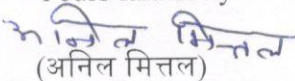 अनिल मित्तल
(अनिल मित्तल)